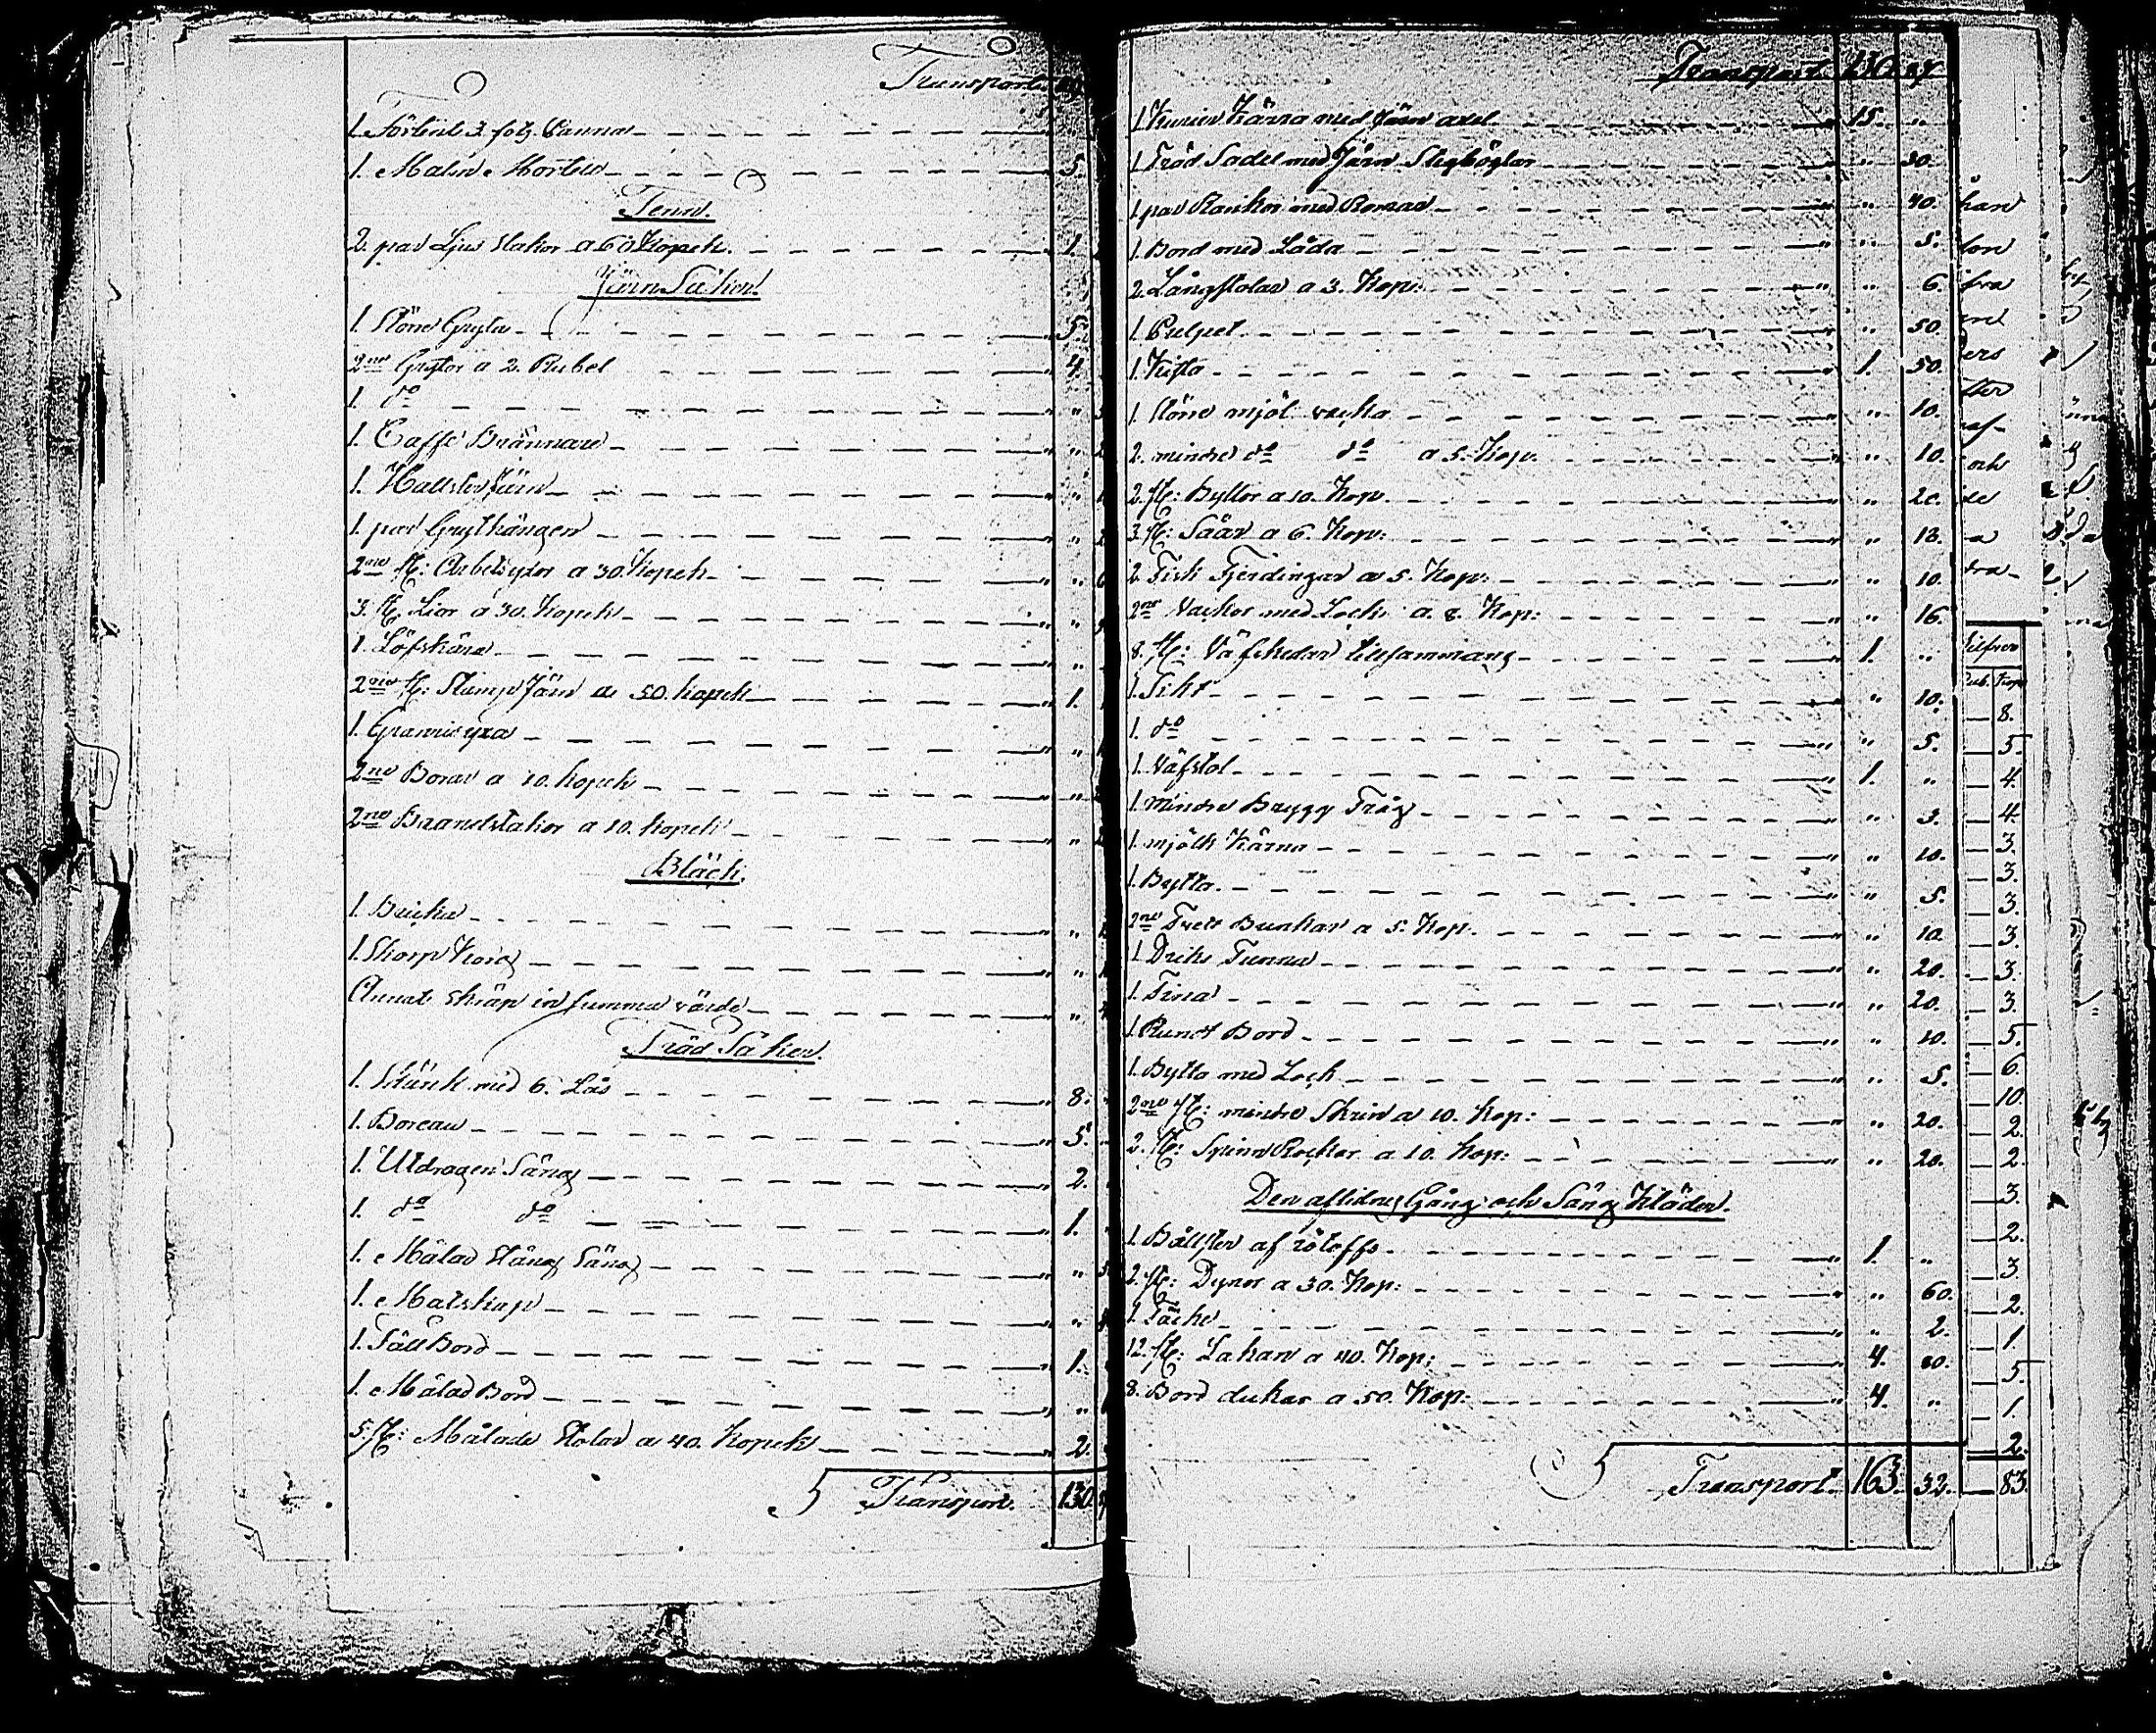 Transport
1. Förtent 3. fotz. Panna
1. Malm Mortel 5.
Tenn.
2. par Ljus stakar a 60 Kopek. 1.
Järn Saker.
1. Större Gryta 5.
2ne Grytor a 2. Rubel 4.
1. do "
1. Caffe Brännare "
1. Halster Järn "
1. par Grythängen "
2ne st: Arbetsyxor a 30. Kopek "
3. st. Liar a 30. Kopek "
1. Löfskära "
2ne st: Stämp Järn a 50. kopek 1.
1. yxa "
2ne Borar a 10. kopek "
2ne Brandstakar a 10. kopek "
Bläck.
1. Bricka "
1. Skorp Korg "
Annat skräp in summa värde "
Träd Saker.
1. Skänk med 6. Lås 8.
1. Boreau 5.
1. Utdragen Säng 2.
1. do do 1.
1. Målad Stäng Säng "
1. Matskap "
1. Fäll Bord 1.
1. Målad Bord "
5. st: Målade Stolar a 40. Kopek 2.
Transport. 130.
Transport 130.
1. Kärra med Järn axel 15. "
1. Träd Sadel med Järn Stigböglar " 30.
1. par Rankor med " 40.
1. Bord med Låda " 5.
2. Långstolar a 3. Kop: " 6.
1. Pulpet " 50.
1. Kista 1. 50.
1. Större mjöl vacka " 10.
2. mindre do do a 5. Kop. " 10.
2. st: Byttor a 10. Kop. " 20.
3. st: Såår a 6. Kop: " 18.
2. Fisk Fjerdingar a 5. Kop: " 10.
2ne Vackor med Lock a. 8. Kop: " 16.
8. st: Väfskedar tillsammans 1. "
1. Sikt " 10.
1. do " 5.
1. Väfstol 1. "
1. mindre Brygg Tråg " 3.
1. mjölk Kärna " 10.
1. Bytta. " 5.
2ne Bunkar a 5. Kop. " 10.
1. Dricks Tunna " 20.
1. Tina " 20.
1. Rundt Bord " 10.
1. Bytta med Lock " 5.
2ne st: mindre Skrin a 10. Kop: " 20.
2. st: Spinn Rockar a 10. Kop: " 20.
Den aflidnes Gång och Säng Kläder.
1. Bålster af 1. "
2. st: Dynor a 30. Kop: " 60.
1. Täcke " 2.
12. st: Lakan a 40. Kop: 4. 80.
8. Bord dukar a 50. Kop: 4. "
Transport 163. 32.
8.
5.
4.
4.
3.
3.
3.
3.
3.
3.
5.
6.
10.
2.
2.
3.
2.
3.
2.
1.
5.
1.
2.
83.